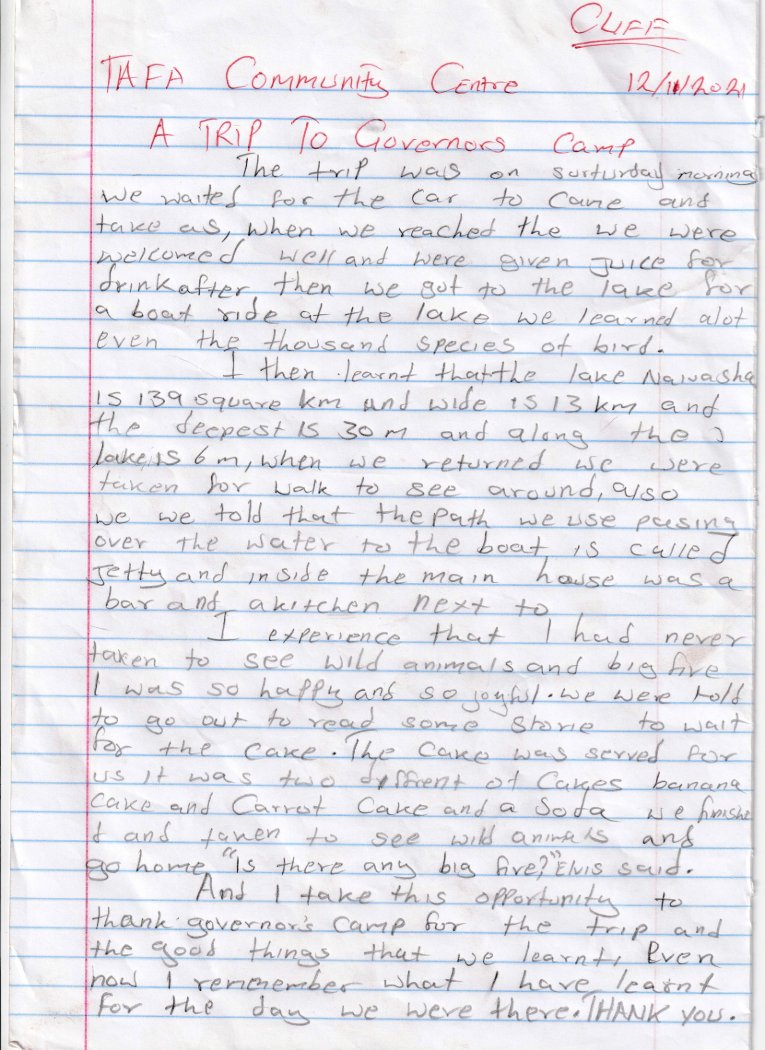 CLIFF
TAFA Community Centre 12/11/2021
A TRIP To Governors Camp
The trip was on surturday morning
we waited for the car to came and
take as, when we reached the we were
welcomed well and were given juice for
drink after then we got to the lake for
a boat ride at the lake we learned alot
even the thousand species of bird.
I then learnt that the lake Naivasha
is 139 square km and wide is 13 km and
the deepest is 30 m and along the
lake, is 6 m, when we returned we were
taken for walk to see around, also
we we told that the path we use passing
over the water to the boat is called
Jetty and inside the main house was a
bar and akitchen next to
I experience that I had never
taken to see wild animals and big five
I was so happy and so joyful. we were told
to go out to read some storie to wait
for the cake. The cake was served for
us it was two diffrent of Cakes banana
cake and Carrot Cake and a Soda we finishe
d and taken to see wild animals and
go home "Is there any big five?" Elvis said.
And I take this opportunity to
thank governor's camp for the trip and
the good things that we learnt, Even
now I remember what I have learnt
for the day we were there. THANK YOU.